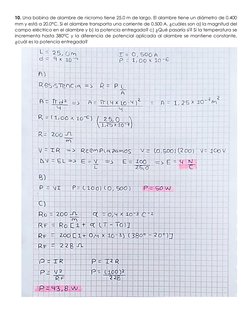 10. Una bobina de alambre de nicromo tiene 25.0 m de largo. El alambre tiene un diámetro de 0.400
mm y está a 20.0°C. Si el alambre transporta una corriente de 0.500 A, ¿cuáles son a) la magnitud del
campo eléctrico en el alambre y b) la potencia entregada? c) ¿Qué pasaría si? Si la temperatura se
incrementa hasta 380°C y la diferencia de potencial aplicada al alambre se mantiene constante,
¿cuál es la potencia entregada?
L = 25,0m I = 0,500 A
d = 4 × 10⁻⁴ ρ = 1.00 × 10⁻⁶
A)
RESISTENCIA => R = ρ L/A
A = πd²/4 => A = π(4×10⁻⁴)²/4 = A = 1.25 × 10⁻⁷ m²
R = (1.00×10⁻⁶) (25,0/1.25×10⁻⁷)
R = 200 Ω
V = IR => REEMPLAZAMOS V = (0,500)(200) V = 100V
ΔV = EL => E = V/L => E = 100/25,0 => E = 4 N/C
B)
P = VI P = (100)(0,500) P = 50 W
C)
R₀ = 200 Ω α = 0,4 × 10⁻³ C⁻¹
RF = R₀ [1 + α (T - T₀)]
RF = 200 [1 + 0,4 × 10⁻³ (380° - 20°)]
RF = 228 Ω
P = IR P = I²R
P = V²/RF P = (100)²/228
P = 43,8 W